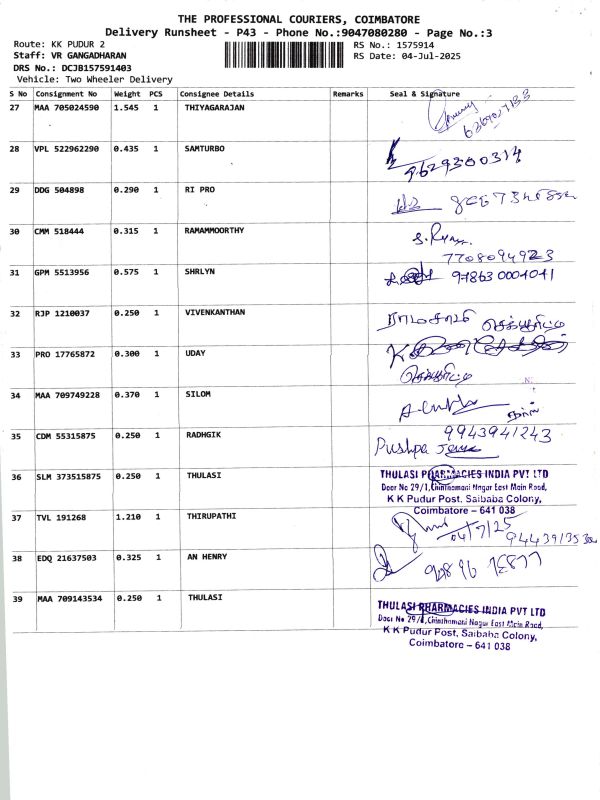 THE PROFESSIONAL COURIERS, COIMBATORE
Delivery Runsheet - P43 - Phone No.:9047080280 - Page No.:3
Route: KK PUDUR 2 RS No.: 1575914
Staff: VR GANGADHARAN RS Date: 04-Jul-2025
DRS No.: DCJB157591403
Vehicle: Two Wheeler Delivery
S No Consignment No Weight PCS Consignee Details Remarks Seal & Signature
27 MAA 705024590 1.545 1 THIYAGARAJAN
28 VPL 522962290 0.435 1 SAMTURBO
9629300314
29 DDG 504898 0.290 1 RI PRO
30 CMM 518444 0.315 1 RAMAMMOORTHY
7708094923
31 GPM 5513956 0.575 1 SHRLYN
32 RJP 1210037 0.250 1 VIVENKANTHAN
ராமசாமி செக்யூரிட்டி
33 PRO 17765872 0.300 1 UDAY
செக்யூரிட்டி
34 MAA 709749228 0.370 1 SILOM
35 CDM 55315875 0.250 1 RADHGIK
9943941243
Pushpa
36 SLM 373515875 0.250 1 THULASI
THULASI PHARMACIES INDIA PVT LTD
Door No 29/1, Chinthamani Nagar East Main Road,
K K Pudur Post, Saibaba Colony,
Coimbatore - 641 038
37 TVL 191268 1.210 1 THIRUPATHI
04/7/25
38 EDQ 21637503 0.325 1 AN HENRY
39 MAA 709143534 0.250 1 THULASI
THULASI PHARMACIES INDIA PVT LTD
Door No 29/1, Chinthamani Nagar East Main Road,
K K Pudur Post, Saibaba Colony,
Coimbatore - 641 038